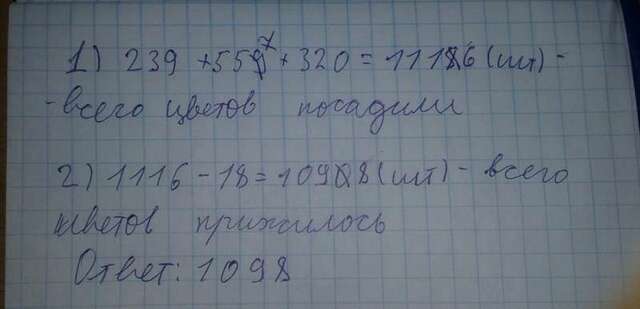 1) 239 + 557 + 320 = 1116 (шт) -
- всего цветов посадили
2) 1116 - 18 = 1098 (шт) - всего
цветов прижилось
Ответ: 1098